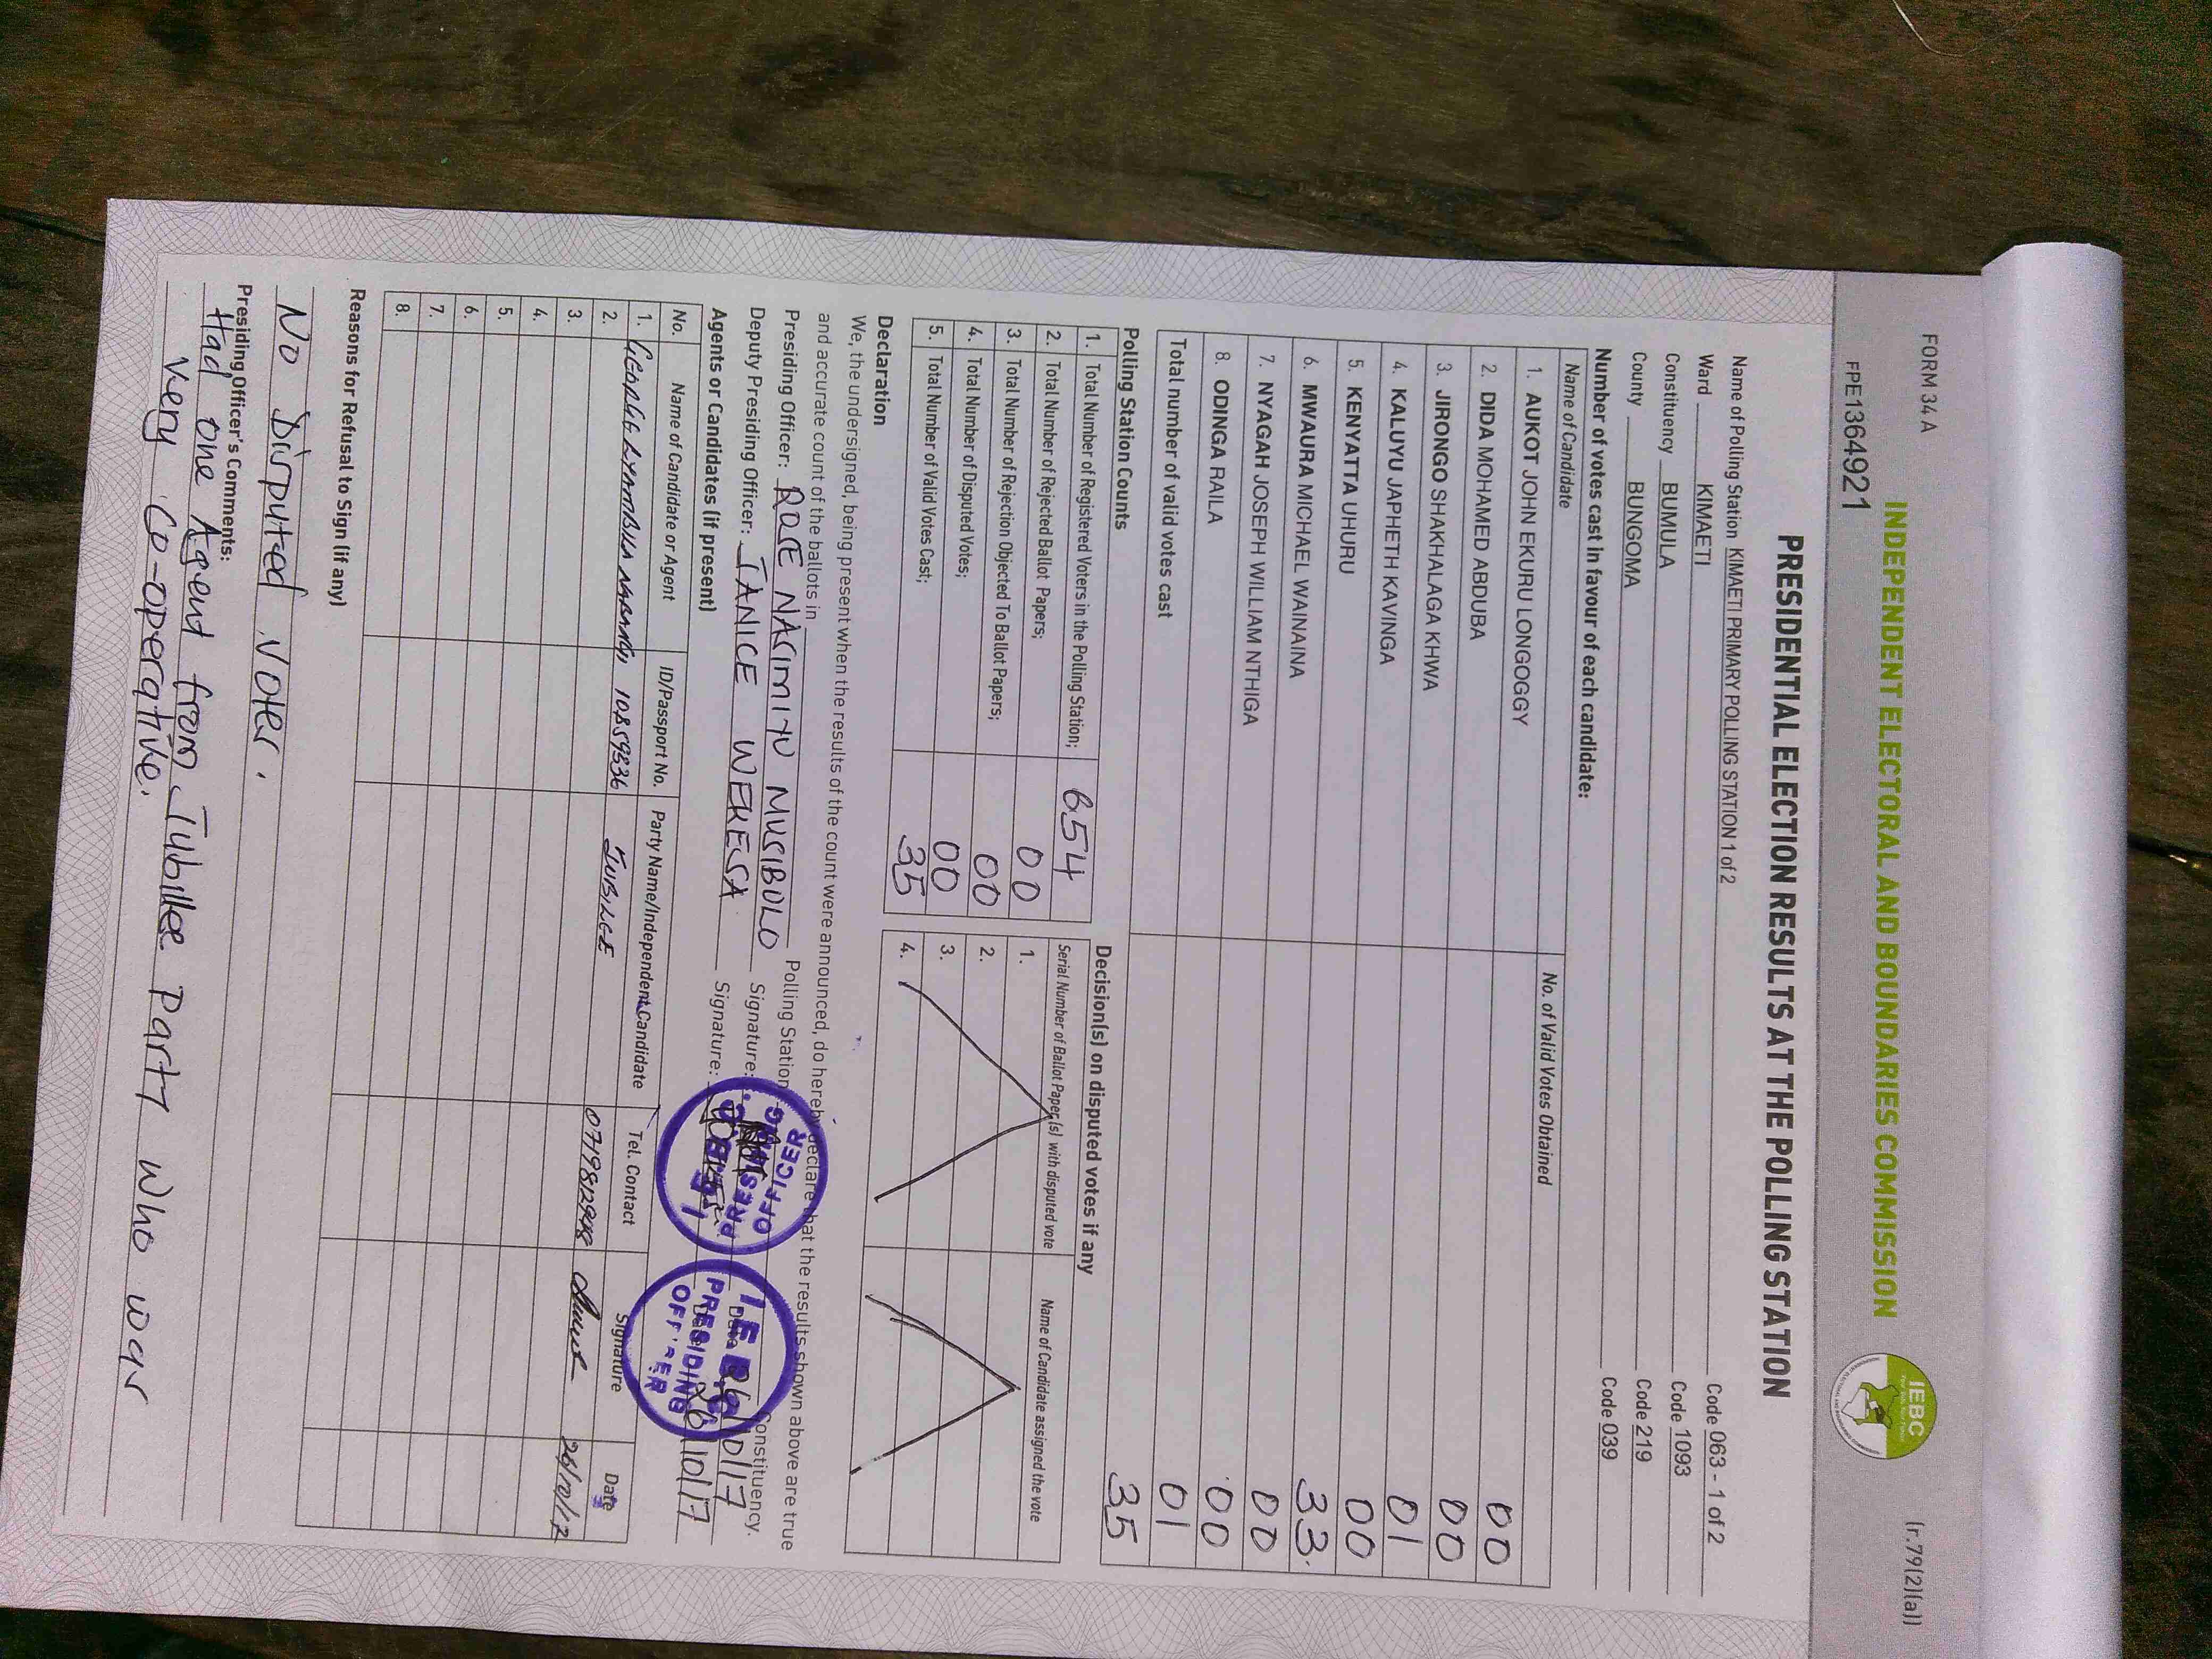 FORM 34 A
(r.79(2)(a))
INDEPENDENT ELECTORAL AND BOUNDARIES COMMISSION
IEBC
FPE1364921
PRESIDENTIAL ELECTION RESULTS AT THE POLLING STATION
Name of Polling Station KIMAETI PRIMARY POLLING STATION 1 of 2 Code 063 - 1 of 2
Ward KIMAETI Code 1093
Constituency BUMULA Code 219
County BUNGOMA Code 039
Number of votes cast in favour of each candidate:
Name of Candidate No. of Valid Votes Obtained
1. AUKOT JOHN EKURU LONGOGGY 00
2. DIDA MOHAMED ABDUBA 00
3. JIRONGO SHAKHALAGA KHWA 01
4. KALUYU JAPHETH KAVINGA 00
5. KENYATTA UHURU 33.
6. MWAURA MICHAEL WAINAINA 00
7. NYAGAH JOSEPH WILLIAM NTHIGA 00
8. ODINGA RAILA 01
Total number of valid votes cast 35
Polling Station Counts
1. Total Number of Registered Voters in the Polling Station; 654
2. Total Number of Rejected Ballot Papers; 00
3. Total Number of Rejection Objected To Ballot Papers; 00
4. Total Number of Disputed Votes; 00
5. Total Number of Valid Votes Cast; 35
Decision(s) on disputed votes if any
Serial Number of Ballot Paper(s) with disputed vote Name of Candidate assigned the vote
1.
2.
3.
4.
Declaration
We, the undersigned, being present when the results of the count were announced, do hereby declare that the results shown above are true
and accurate count of the ballots in Polling Station Constituency.
Presiding Officer: ROSE NASIMIYU MUSIBOLO Signature: Date 26/10/17
Deputy Presiding Officer: JANICE WEKESA Signature: 26/10/17
I.E.B.C
PRESIDING
OFFICER
I.E.B.C
PRESIDING
OFFICER
Agents or Candidates (if present)
No. Name of Candidate or Agent ID/Passport No. Party Name/Independent Candidate Tel. Contact Signature Date
1. GEORGE 10859336 JUBILEE 0719812948 26/10/17
2.
3.
4.
5.
6.
7.
8.
Reasons for Refusal to Sign (if any)
No Disputed Voter.
Presiding Officer's Comments:
Had one Agent from Jubilee Party Who was
very Co-operative.